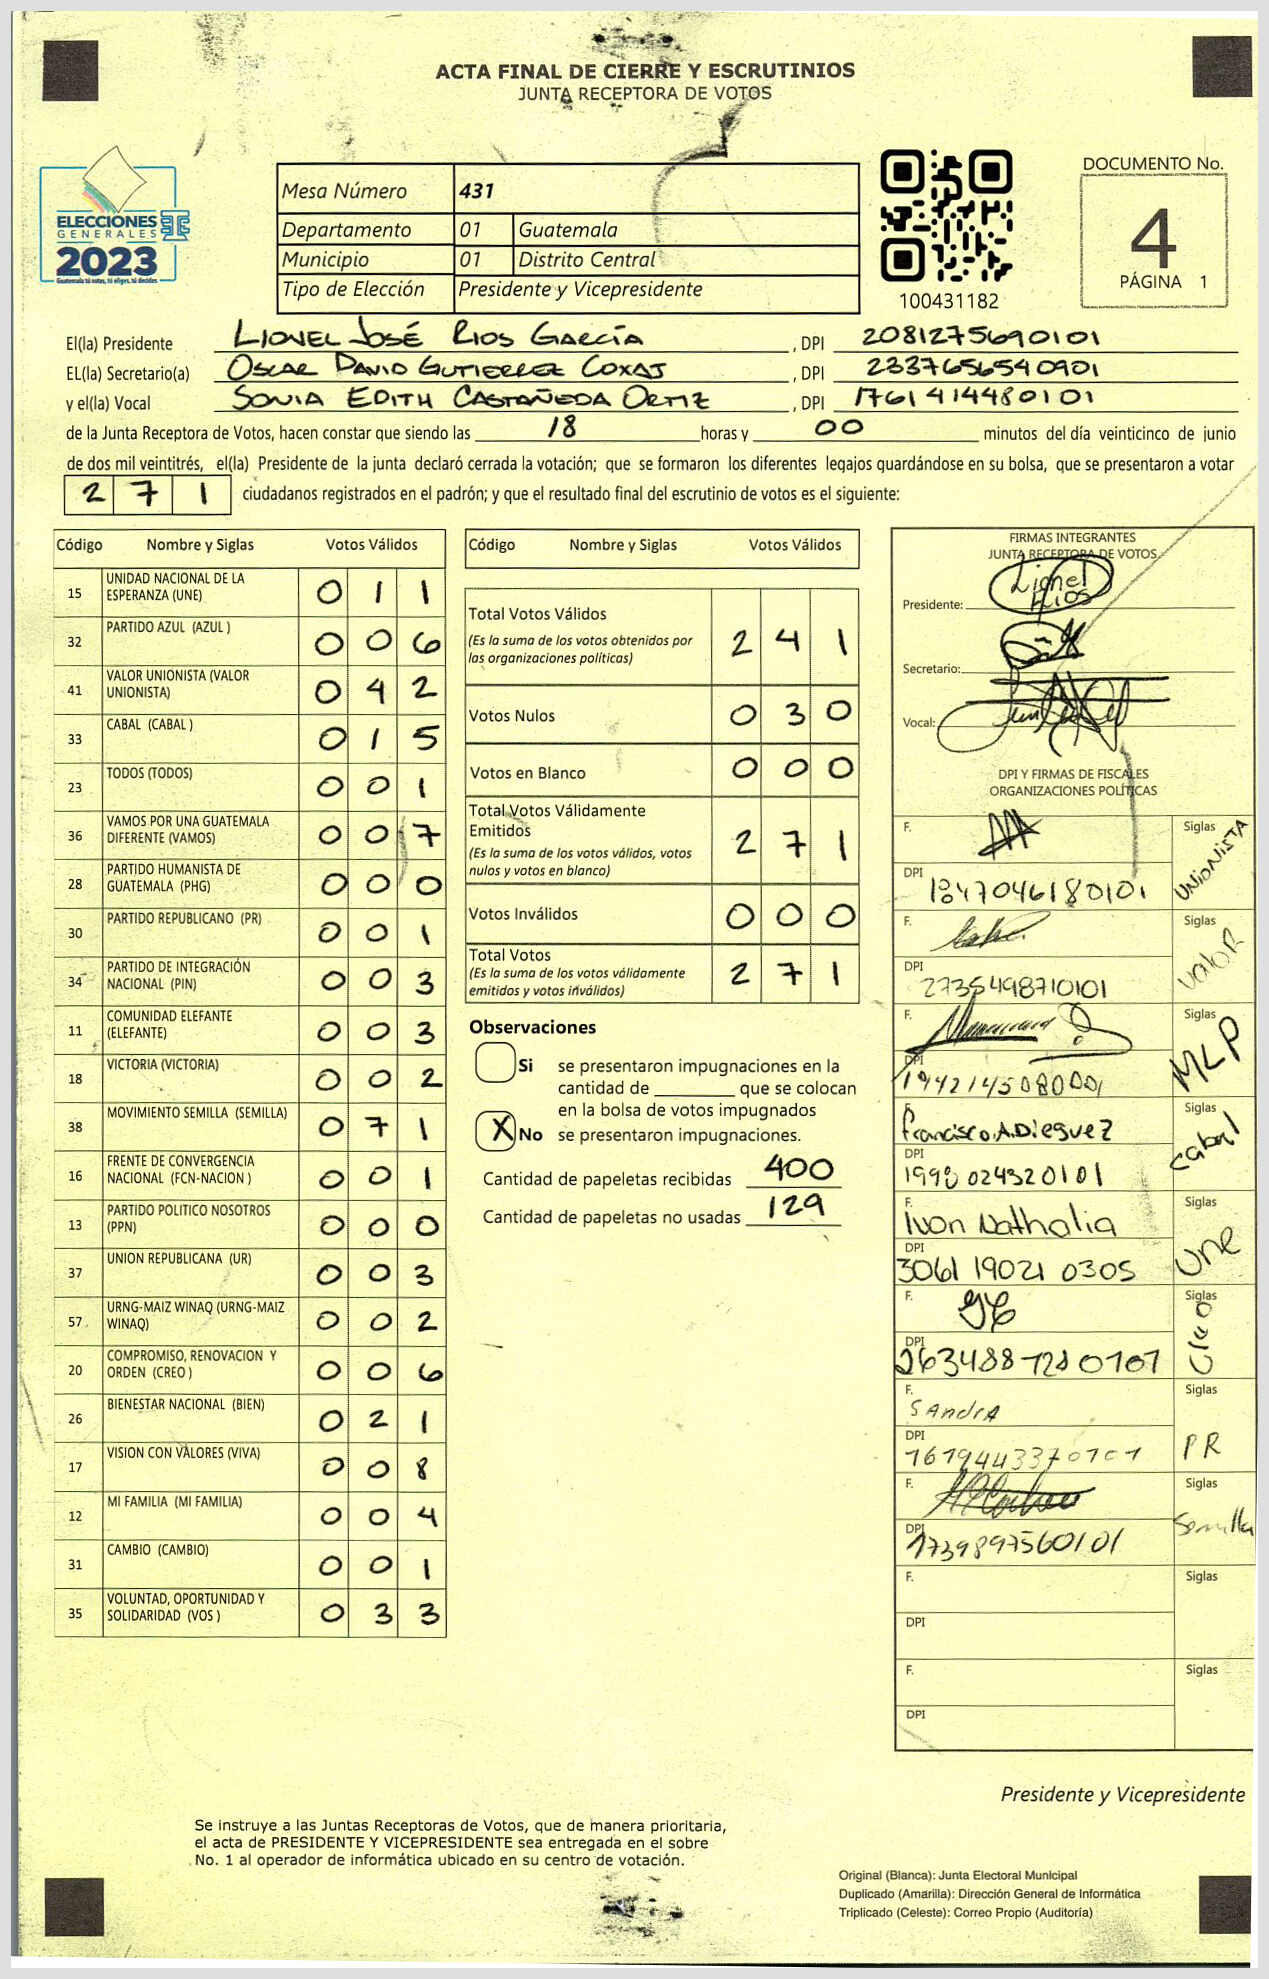 ACTA FINAL DE CIERRE Y ESCRUTINIOS
JUNTA RECEPTORA DE VOTOS
ELECCIONES
GENERALES
2023
Guatemala tú votas, tú eliges, tú decides
Mesa Número 431
Departamento 01 Guatemala
Municipio 01 Distrito Central
Tipo de Elección Presidente y Vicepresidente
100431182
DOCUMENTO No.
4
PÁGINA 1
El(la) Presidente LIONEL JOSÉ RIOS GARCÍA, DPI 2081275690101
EL(la) Secretario(a) OSCAR DAVID GUTIERREZ COXAJ, DPI 2337656540901
y el(la) Vocal SONIA EDITH CASTAÑEDA ORTIZ, DPI 1761414480101
de la Junta Receptora de Votos, hacen constar que siendo las 18 horas y 00 minutos del día veinticinco de junio
de dos mil veintitrés, el(la) Presidente de la junta declaró cerrada la votación; que se formaron los diferentes legajos guardándose en su bolsa, que se presentaron a votar
271 ciudadanos registrados en el padrón; y que el resultado final del escrutinio de votos es el siguiente:
Código Nombre y Siglas Votos Válidos
15 UNIDAD NACIONAL DE LA ESPERANZA (UNE) 0 1 1
32 PARTIDO AZUL (AZUL ) 0 0 6
41 VALOR UNIONISTA (VALOR UNIONISTA) 0 4 2
33 CABAL (CABAL ) 0 1 5
23 TODOS (TODOS) 0 0 1
36 VAMOS POR UNA GUATEMALA DIFERENTE (VAMOS) 0 0 7
28 PARTIDO HUMANISTA DE GUATEMALA (PHG) 0 0 0
30 PARTIDO REPUBLICANO (PR) 0 0 1
34 PARTIDO DE INTEGRACIÓN NACIONAL (PIN) 0 0 3
11 COMUNIDAD ELEFANTE (ELEFANTE) 0 0 3
18 VICTORIA (VICTORIA) 0 0 2
38 MOVIMIENTO SEMILLA (SEMILLA) 0 7 1
16 FRENTE DE CONVERGENCIA NACIONAL (FCN-NACION ) 0 0 1
13 PARTIDO POLITICO NOSOTROS (PPN) 0 0 0
37 UNION REPUBLICANA (UR) 0 0 3
57 URNG-MAIZ WINAQ (URNG-MAIZ WINAQ) 0 0 2
20 COMPROMISO, RENOVACION Y ORDEN (CREO ) 0 0 6
26 BIENESTAR NACIONAL (BIEN) 0 2 1
17 VISION CON VALORES (VIVA) 0 0 8
12 MI FAMILIA (MI FAMILIA) 0 0 4
31 CAMBIO (CAMBIO) 0 0 1
35 VOLUNTAD, OPORTUNIDAD Y SOLIDARIDAD (VOS ) 0 3 3
Código Nombre y Siglas Votos Válidos
Total Votos Válidos 2 4 1
(Es la suma de los votos obtenidos por
las organizaciones políticas)
Votos Nulos 0 3 0
Votos en Blanco 0 0 0
Total Votos Válidamente
Emitidos 2 7 1
(Es la suma de los votos válidos, votos
nulos y votos en blanco)
Votos Inválidos 0 0 0
Total Votos 2 7 1
(Es la suma de los votos válidamente
emitidos y votos inválidos)
Observaciones
Si se presentaron impugnaciones en la
cantidad de ________ que se colocan
en la bolsa de votos impugnados
X No se presentaron impugnaciones.
Cantidad de papeletas recibidas 400
Cantidad de papeletas no usadas 129
FIRMAS INTEGRANTES
JUNTA RECEPTORA DE VOTOS
Presidente: Lionel Rios
Secretario:
Vocal:
DPI Y FIRMAS DE FISCALES
ORGANIZACIONES POLÍTICAS
F. Siglas UNIONISTA
DPI 1847046180101
F. Siglas VALOR
DPI 2735498710101
F. Siglas MLP
DPI
F. Francisco.A.Dieguez Siglas Cabal
DPI 1998024320101
F. Ivon Nathalia Siglas Une
DPI 3061 19021 0305
F. Siglas
DPI 2634887280101
F. SAndrA Siglas PR
DPI 1619443370101
F. Siglas Semilla
DPI 1739897560101
F. Siglas
DPI
F. Siglas
DPI
Presidente y Vicepresidente
Se instruye a las Juntas Receptoras de Votos, que de manera prioritaria,
el acta de PRESIDENTE Y VICEPRESIDENTE sea entregada en el sobre
No. 1 al operador de informática ubicado en su centro de votación.
Original (Blanca): Junta Electoral Municipal
Duplicado (Amarilla): Dirección General de Informática
Triplicado (Celeste): Correo Propio (Auditoría)